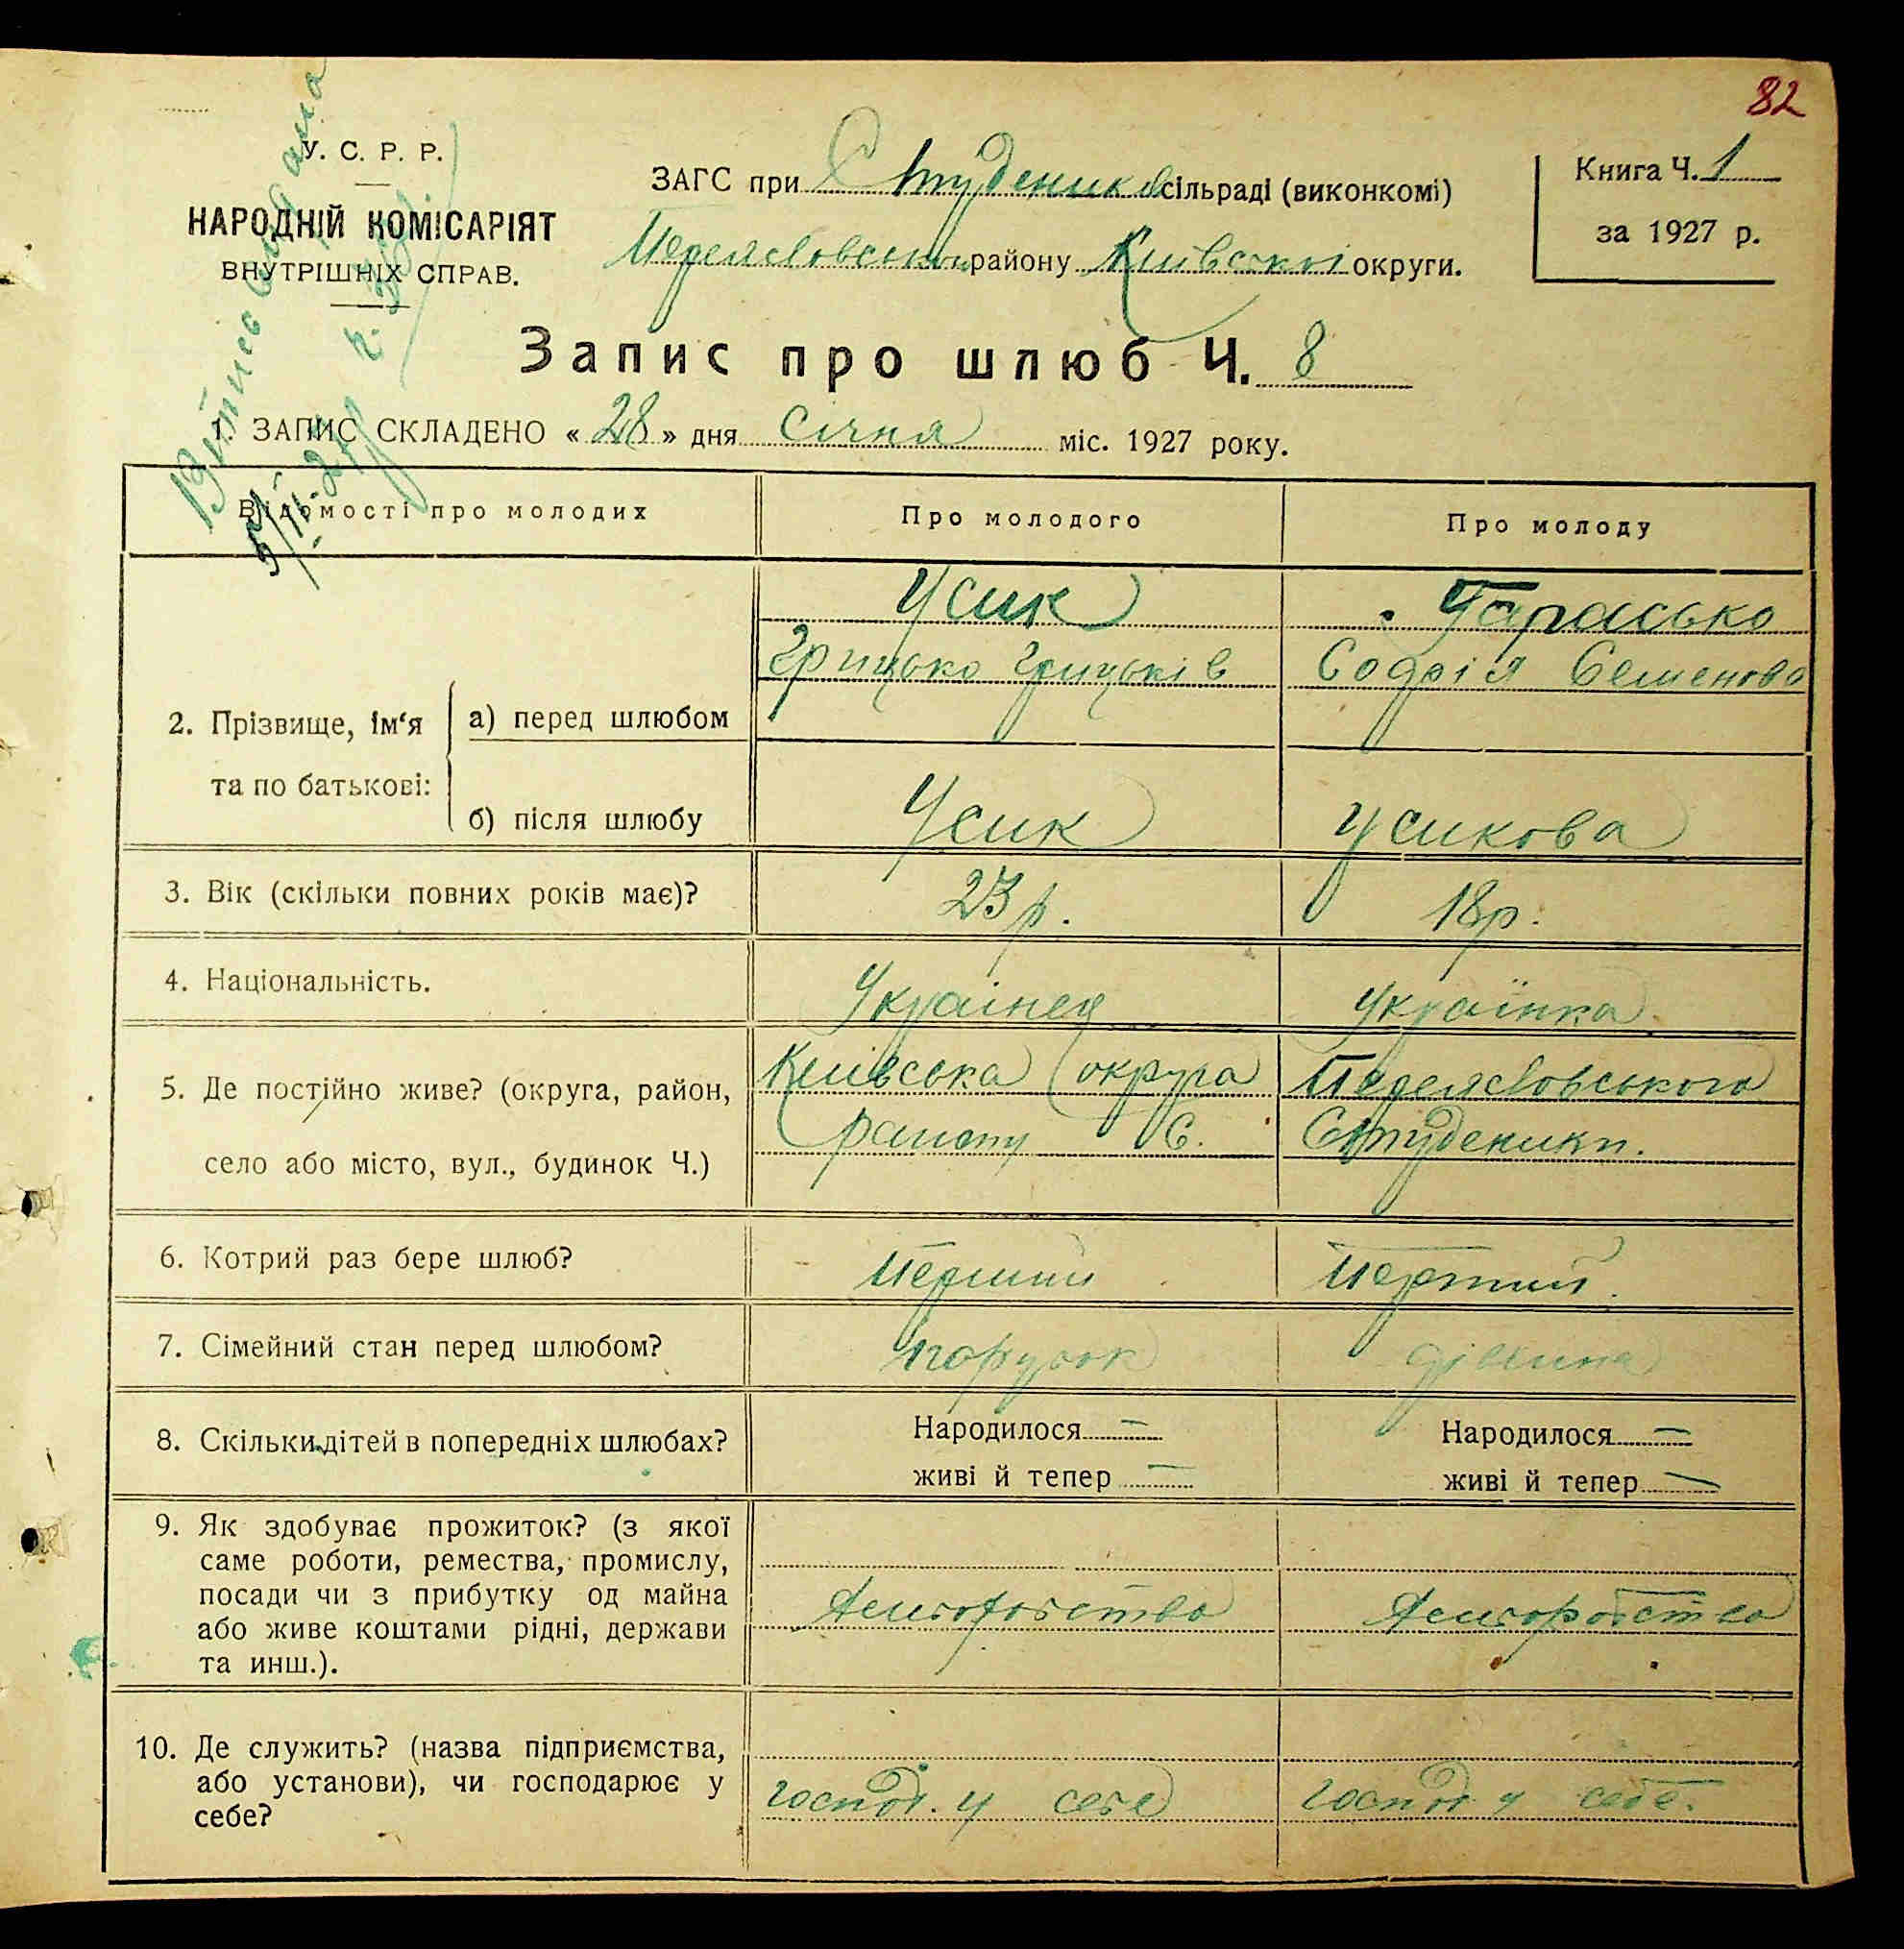 82
У. С. Р. Р.
НАРОДНІЙ КОМІСАРІЯТ
ВНУТРІШНІХ СПРАВ.
ЗАГС при Студеників сільраді (виконкомі)
Переясловського району Київської округи.
Книга Ч. 1
за 1927 р.
Запис про шлюб Ч. 8
1. ЗАПИС СКЛАДЕНО « 28 » дня Січня міс. 1927 року.
Відомості про молодих
Про молодого
Про молоду
2. Прізвище, ім‘я
та по батькові:
а) перед шлюбом
Усик
Грицько Грицьків
Тарасько
Софія Семенова
б) після шлюбу
Усик
Усикова
3. Вік (скільки повних років має)?
23 р.
18 р.
4. Національність.
Українец
Українка
5. Де постійно живе? (округа, район,
село або місто, вул., будинок Ч.)
Київська округа Переясловського
району С. Студеники.
6. Котрий раз бере шлюб?
Перший
Перший.
7. Сімейний стан перед шлюбом?
парубок
дівчина
8. Скільки дітей в попередніх шлюбах?
Народилося —
живі й тепер —
Народилося —
живі й тепер —
9. Як здобуває прожиток? (з якої
саме роботи, ремества, промислу,
посади чи з прибутку од майна
або живе коштами рідні, держави
та инш.).
Хліборобство
Хліборобство
10. Де служить? (назва підприємства,
або установи), чи господарює у
себе?
господ. у себе
господ. у себе.